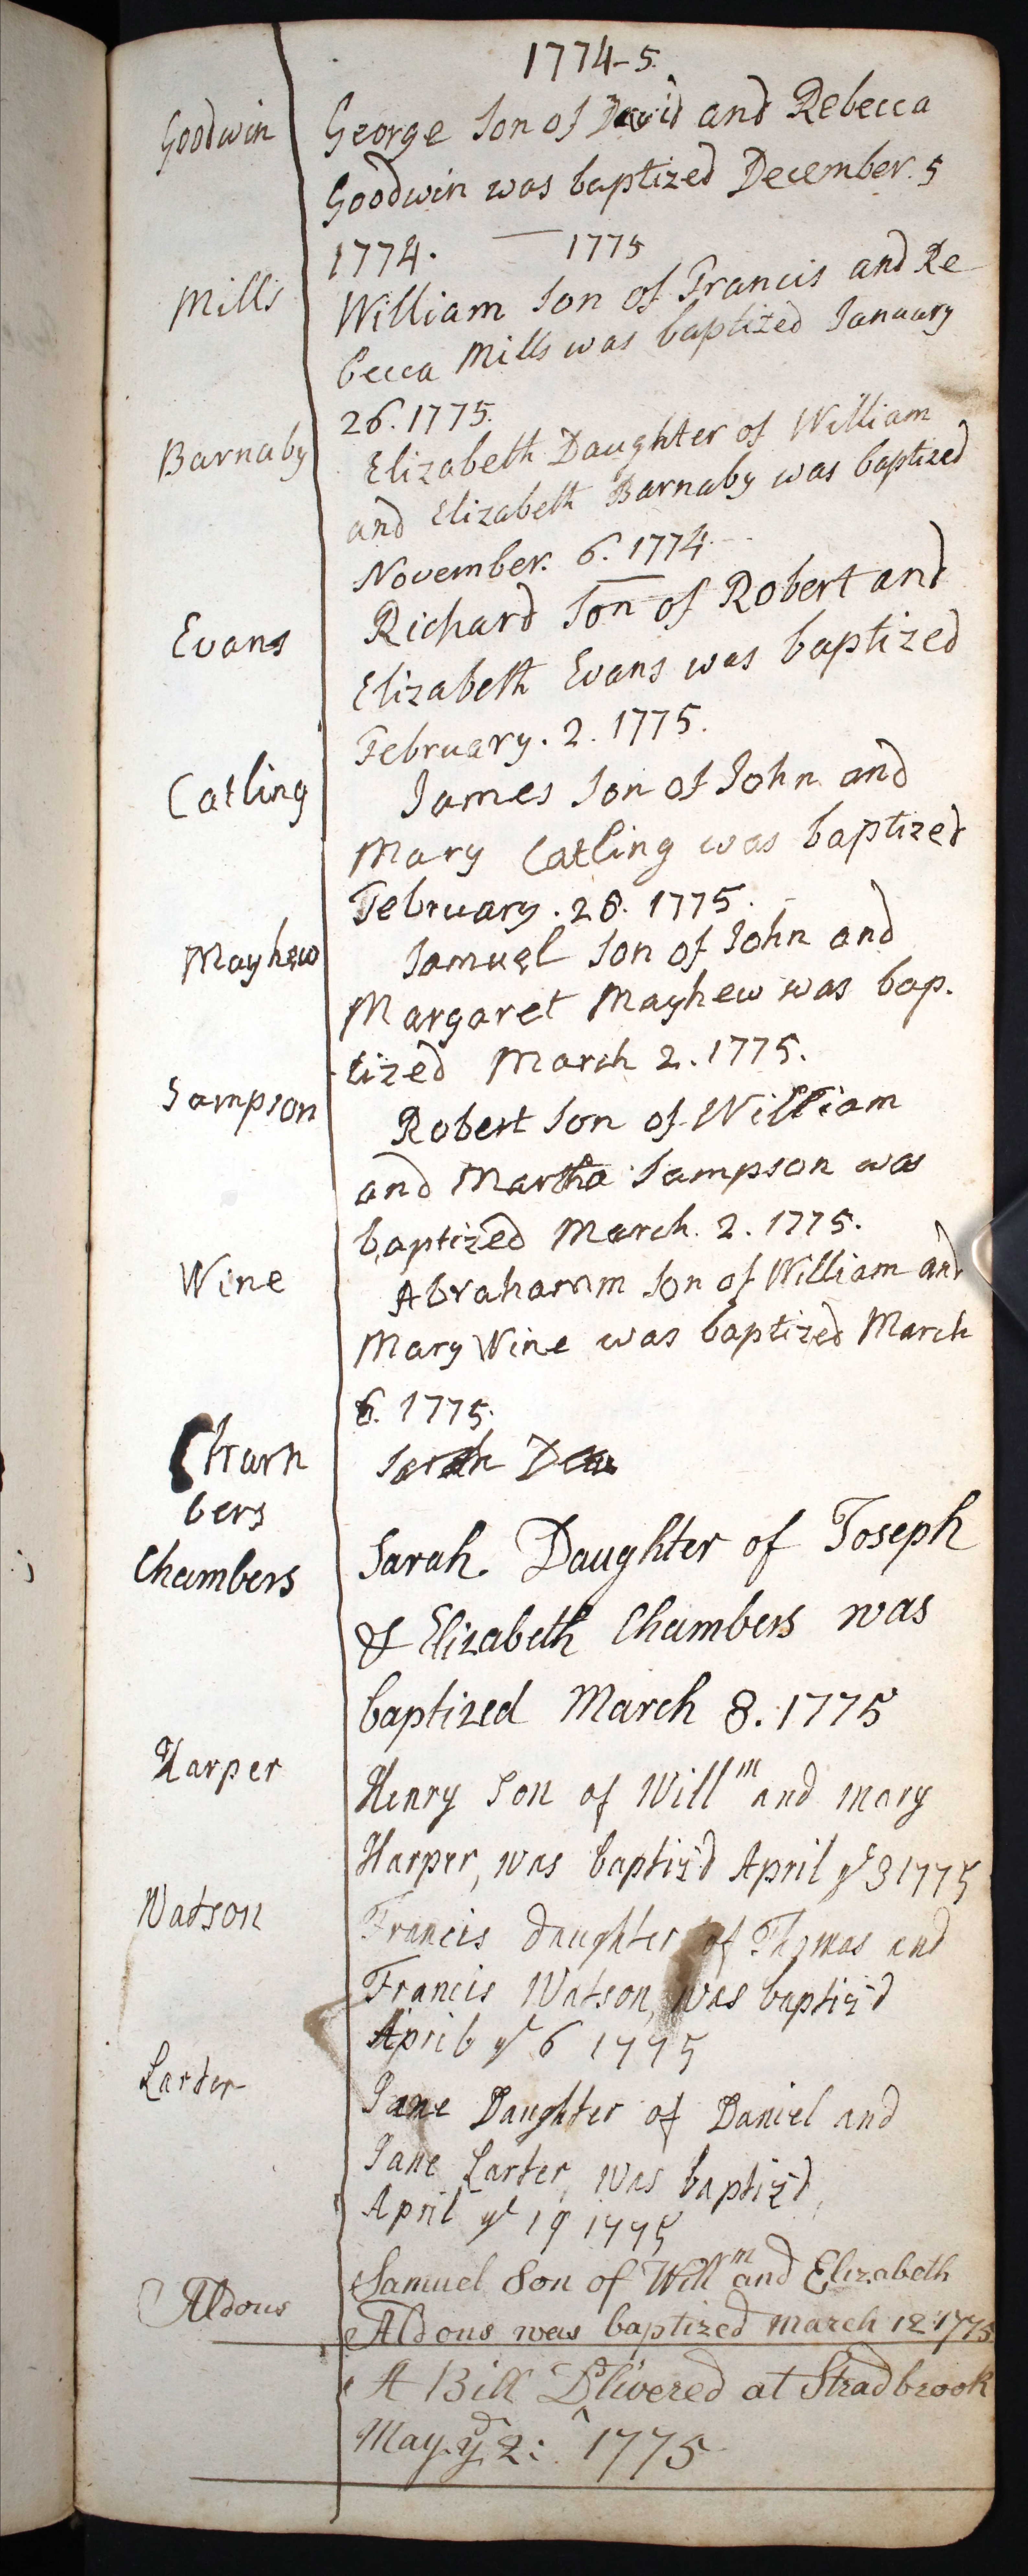 1774-5.
Goodwin George Son of David and Rebecca
Goodwin was baptized December. 5
1774. — 1775
Mills William Son of Francis and Re
becca Mills was baptized January
26. 1775.
Barnaby Elizabeth Daughter of William
and Elizabeth Barnaby was baptized
November. 6. 1774
Evans Richard Son of Robert and
Elizabeth Evans was baptized
February. 2. 1775.
Catling James Son of John and
Mary Catling was baptized
February. 26. 1775.
Mayhew Samuel Son of John and
Margaret Mayhew was bap.
tized March 2. 1775.
Sampson Robert Son of William
and Martha Sampson was
baptized March. 2. 1775.
Wine Abrahamm Son of William and
Mary Wine was baptized March
6. 1775.
Cham Sarah
bers
Chambers Sarah. Daughter of Joseph
& Elizabeth Chambers was
baptized March 8. 1775
Harper Henry Son of Willm and mary
Harper, was baptiz'd April ye 3 1775
Watson Francis daughter of Thomas and
Francis Watson, was baptiz'd
April ye 6 1775
Larter Jane Daughter of Daniel and
Jane Larter, was baptiz'd,
April ye 19 1775
Aldous Samuel Son of Willm and Elizabeth
Aldous was baptized march 12 1775
A Bill Dlivered at Stradbrook
May. ye 2: 1775